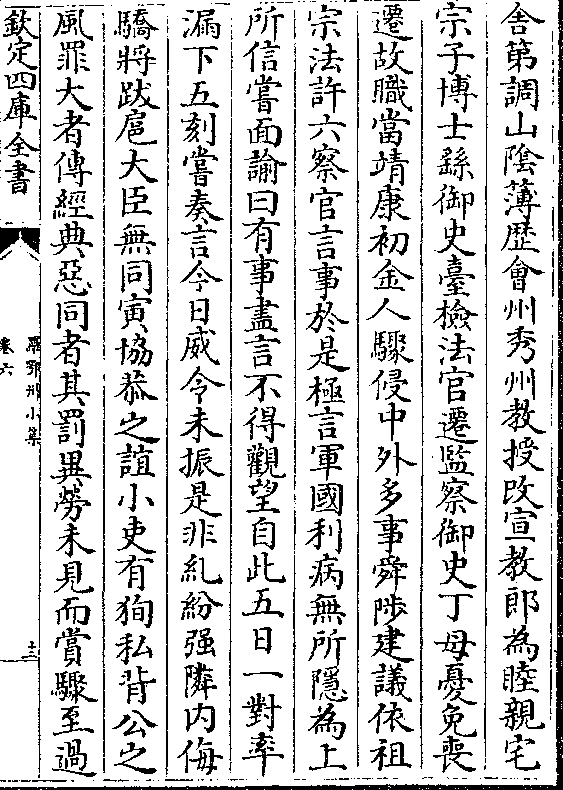 舍第調山陰薄歴會州秀州教授改宣教郎為睦親宅
宗子博士繇御史臺檢法官遷監察御史丁母憂免喪
遷故職當靖康初金人驟侵中外多事舜陟建議依祖
宗法許六察官言事於是極言軍國利病無所隱為上
所信嘗面諭曰有事盡言不得觀望自此五日一對率
漏下五刻嘗奏言今日威令未振是非糺紛强隣内侮
驕將跋扈大臣無同寅協恭之誼小吏有狥私背公之
風罪大者傅經典惡同者其罰異勞未見而賞驟至過
欽定四庫全書
羅鄂州小集
卷六
十三